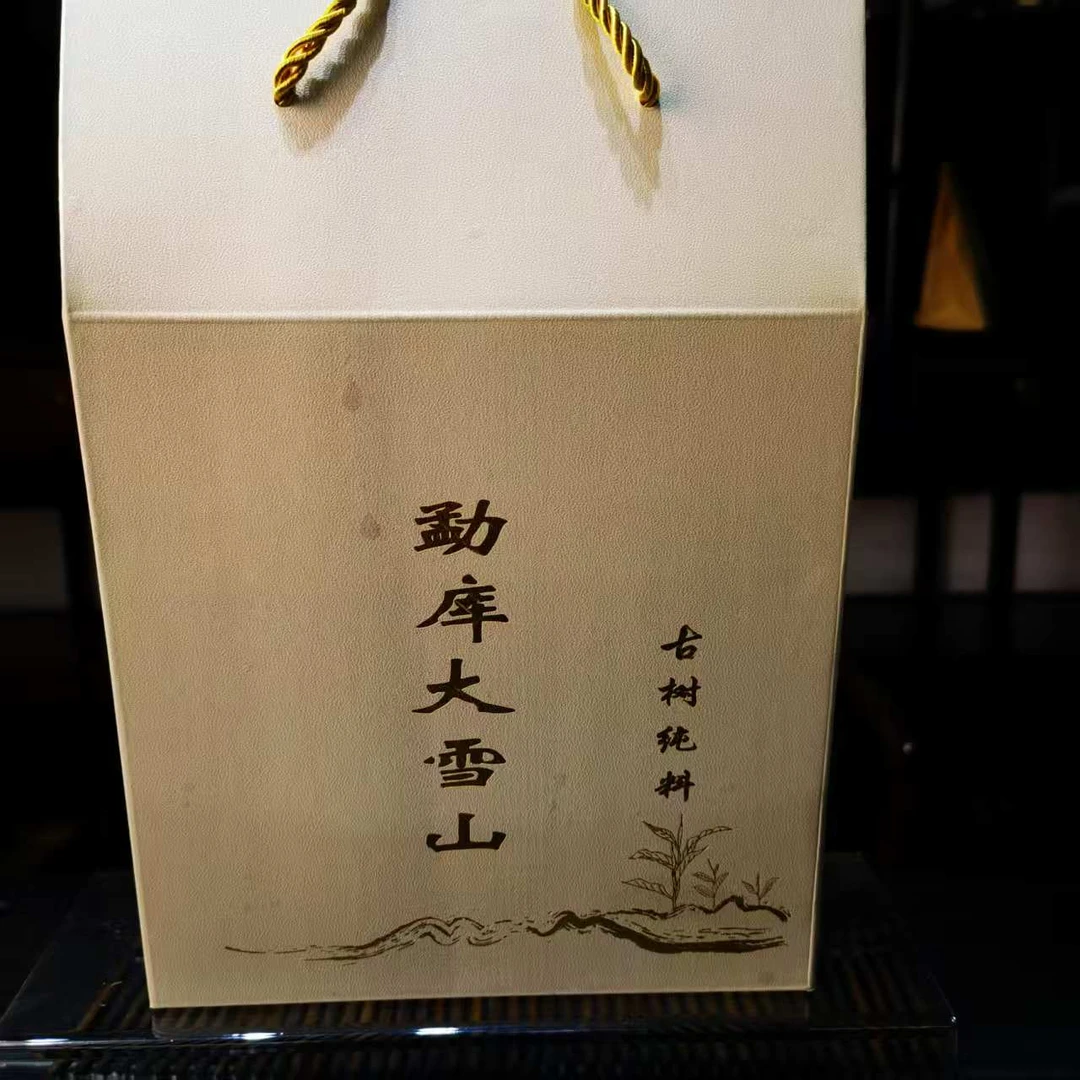 勐库大雪山
古树纯料